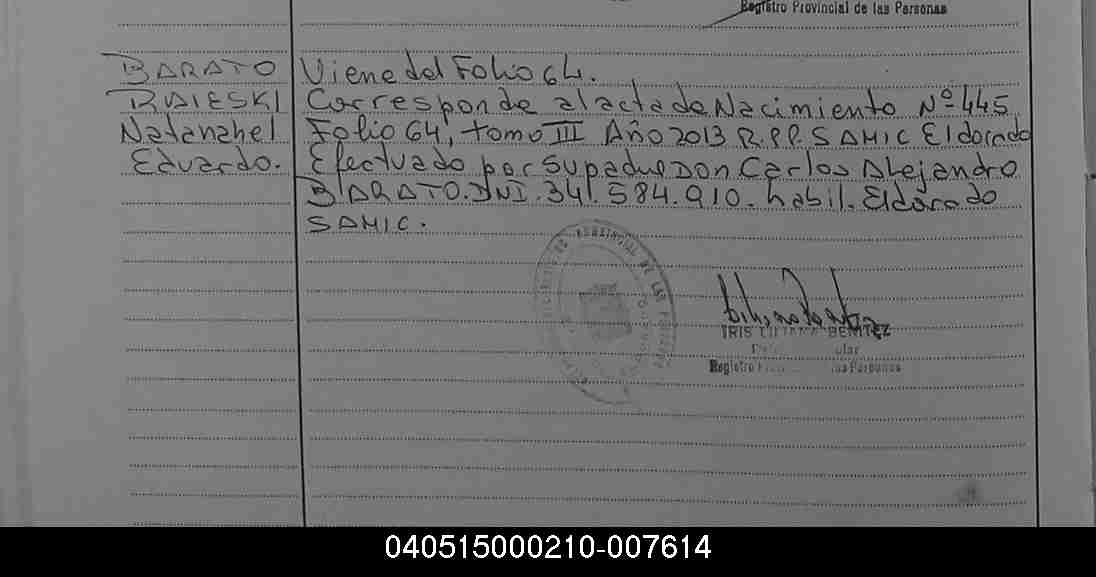 Registro Provincial de las Personas
BARATO
RAIESKI
Natanahel
Eduardo.
Viene del Folio 64.
Corresponde al acta de Nacimiento Nº 445
Folio 64, tomo III Año 2013 R.P.P. SAMIC Eldorado
Efectuado por su padre Don Carlos Alejandro
BARATO. DNI. 34.584.910. habil. Eldorado
SAMIC.
PROVINCIAL DE LAS
IRIS LILIANA BENITEZ
Registro
las Personas
040515000210-007614